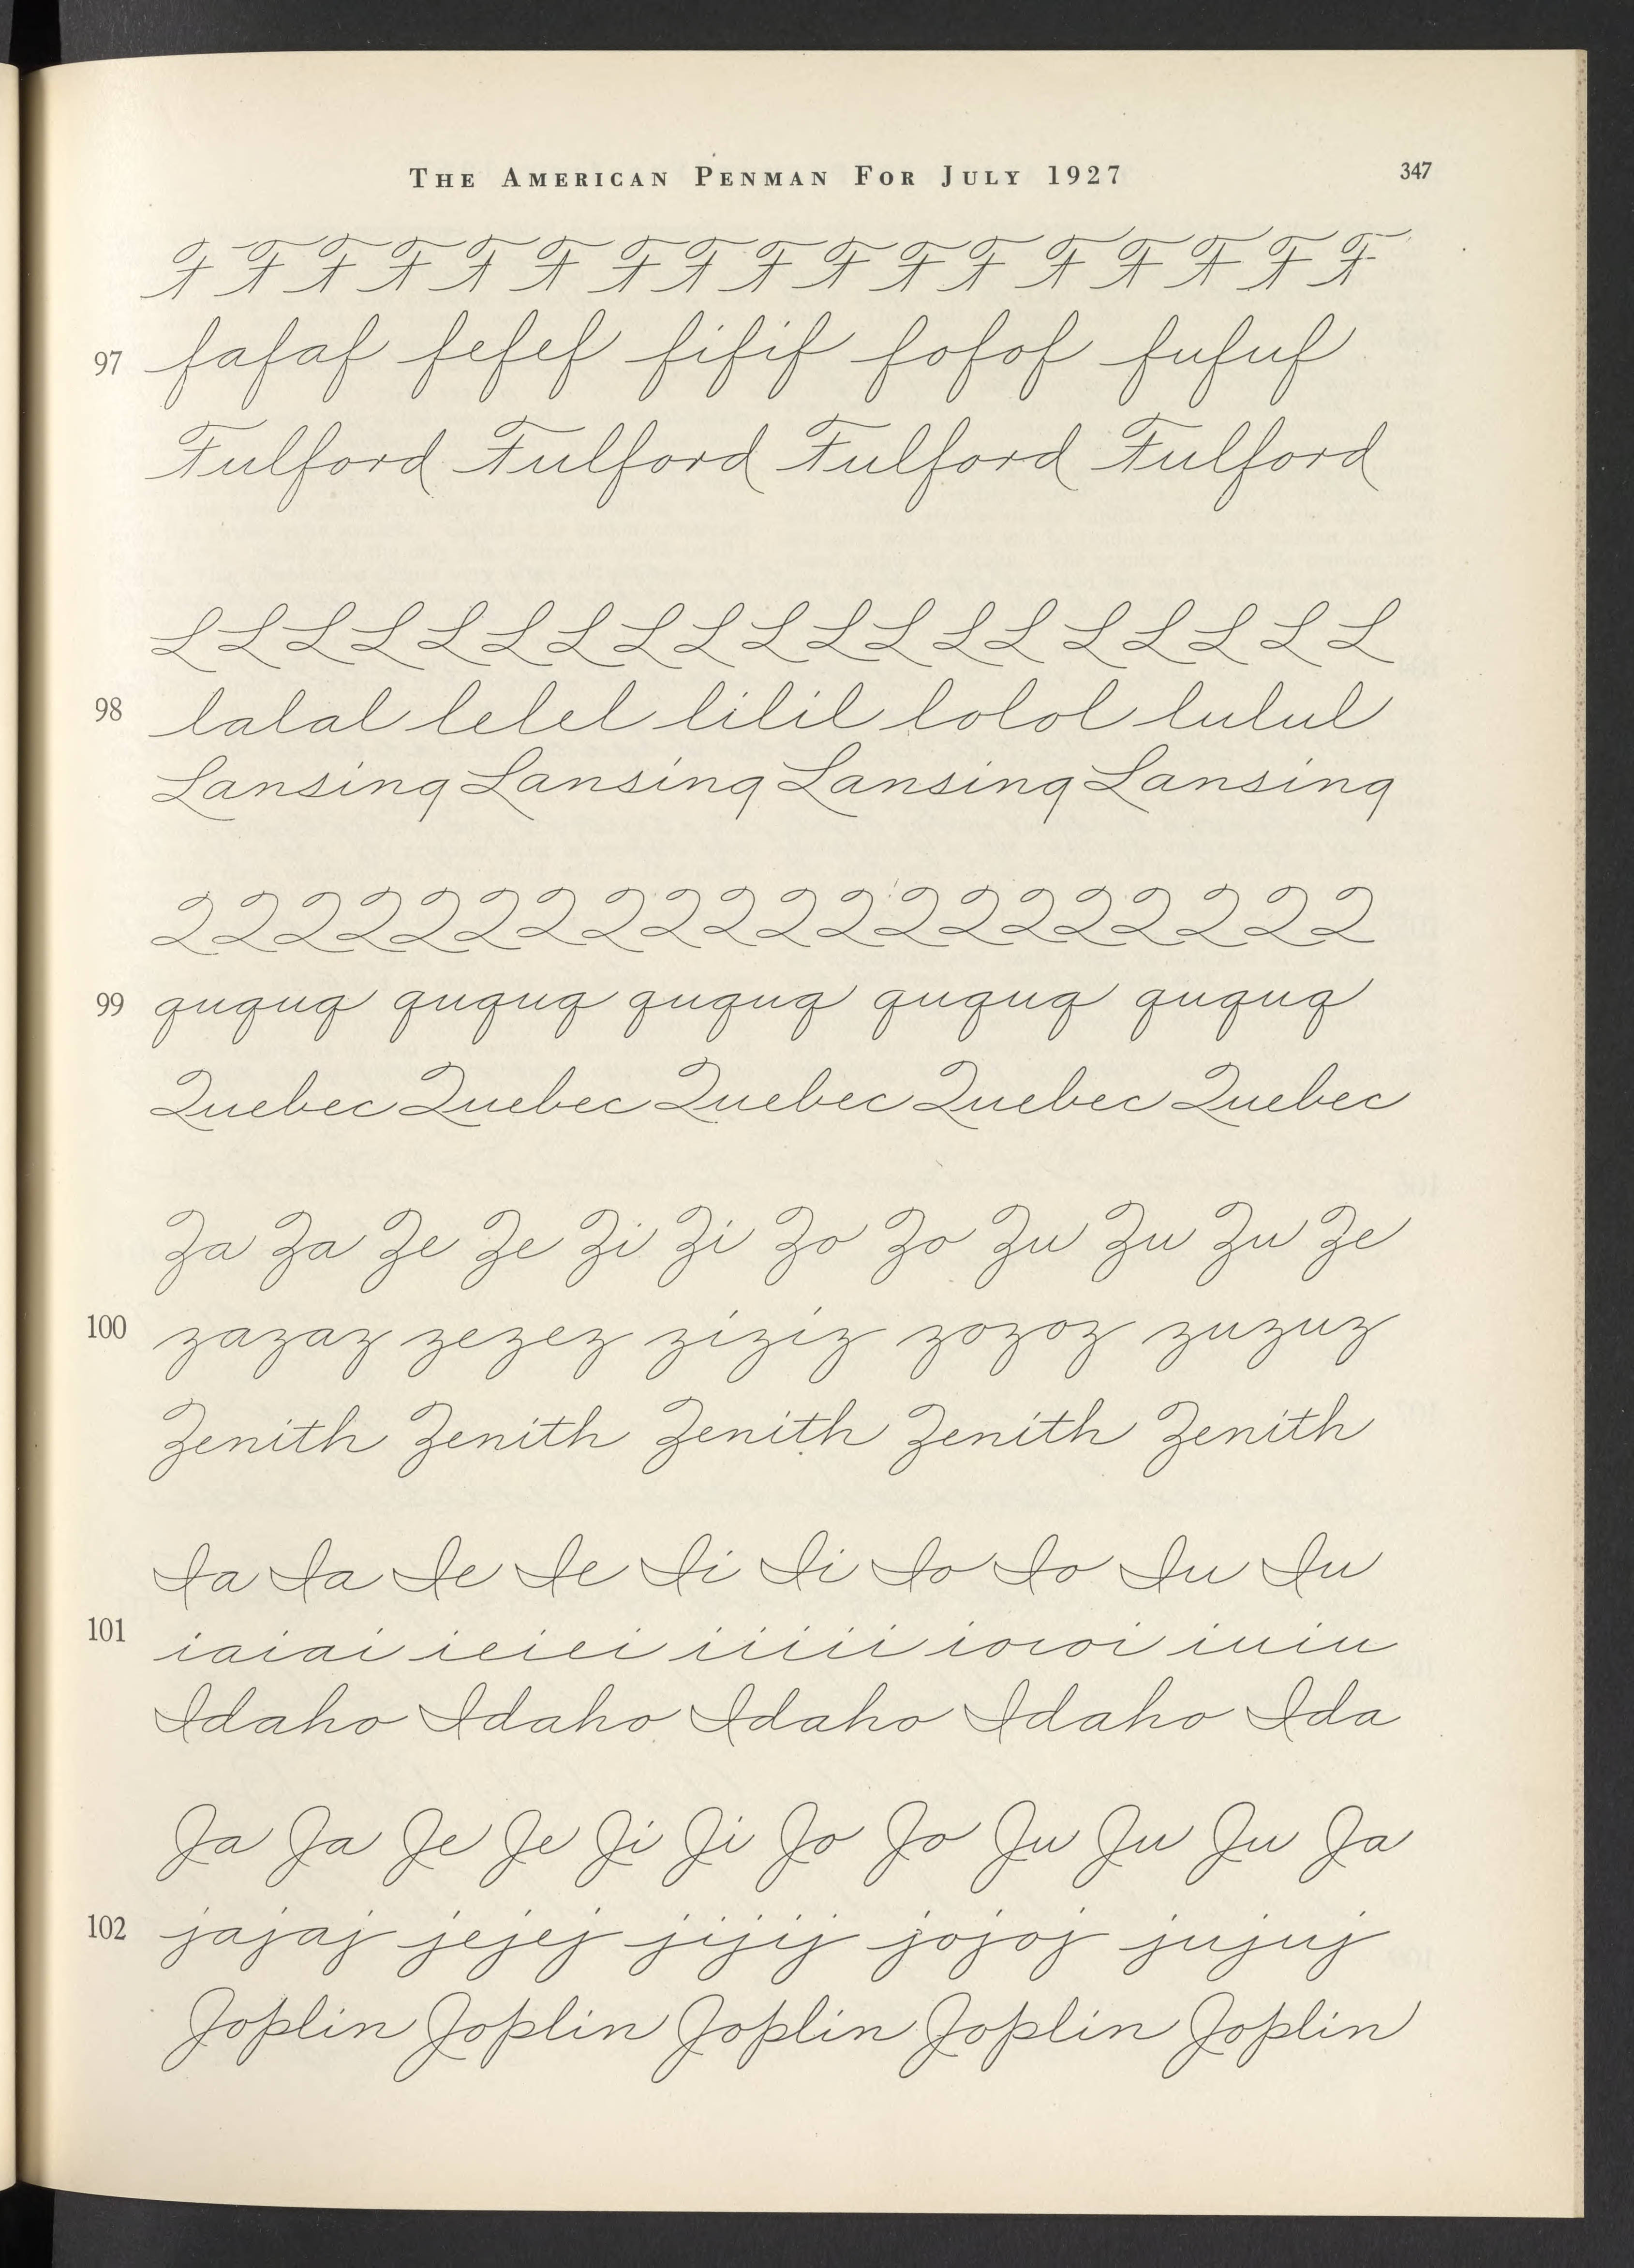 THE AMERICAN PENMAN FOR JULY 1927 347
F F F F F F F F F F F F F F F F F
97 fafaf fefef fifif fofof fufuf
Fulford Fulford Fulford Fulford
L L L L L L L L L L L L L L L L L L L
98 lalal lelel lilil lolol lulul
Lansing Lansing Lansing Lansing
Q Q Q Q Q Q Q Q Q Q Q Q Q Q Q Q Q Q Q Q
99 ququq ququq ququq ququq ququq
Quebec Quebec Quebec Quebec Quebec
Za Za Ze Ze Zi Zi Zo Zo Zu Zu Zu Ze
100 zazaz zezez ziziz zozoz zuzuz
Zenith Zenith Zenith Zenith Zenith
Ia Ia Ie Ie Ii Ii Io Io Iu Iu
101 iaiai ieiei iiiii ioioi iuiu
Idaho Idaho Idaho Idaho Ida
Ja Ja Je Je Ji Ji Jo Jo Ju Ju Ju Ja
102 jajaj jejej jijij jojoj jujuj
Joplin Joplin Joplin Joplin Joplin